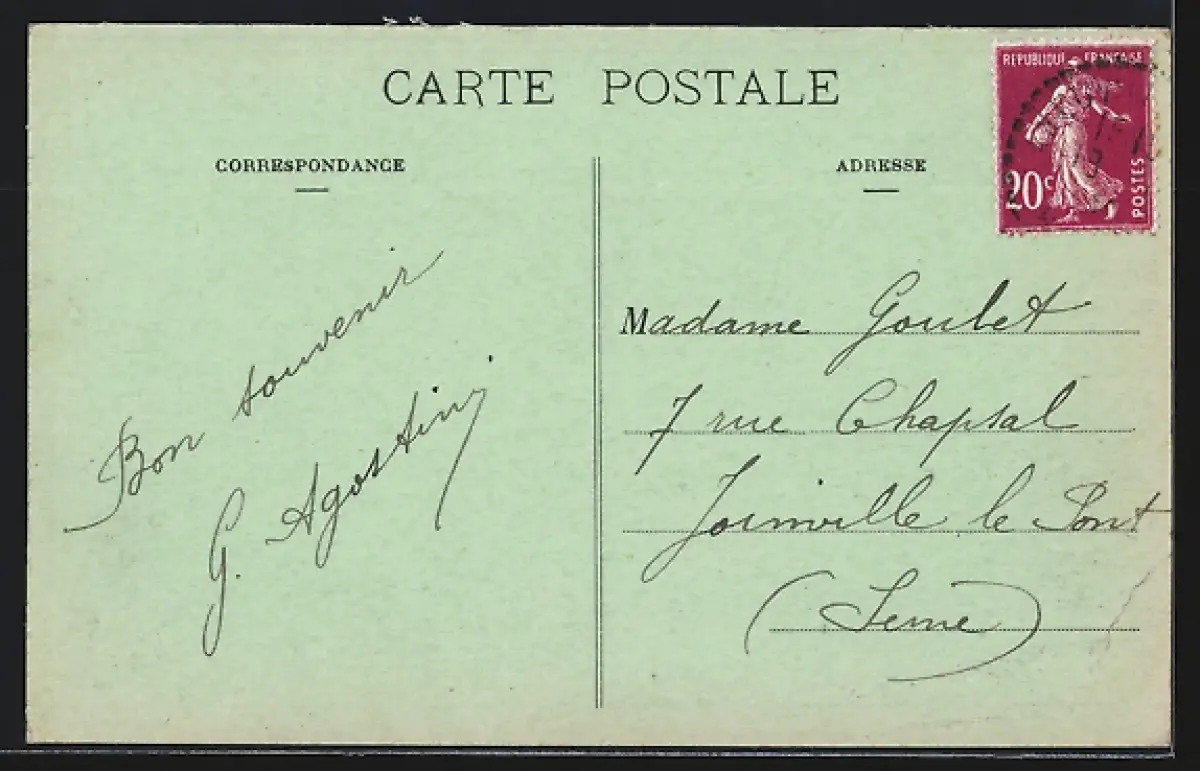 CARTE POSTALE
CORRESPONDANCE
ADRESSE
REPUBLIQUE FRANÇAISE
20c
POSTES
Bon souvenir
G. Agostini
Madame Goulet
7 rue Chapsal
Joinville le Pont
(Seine)